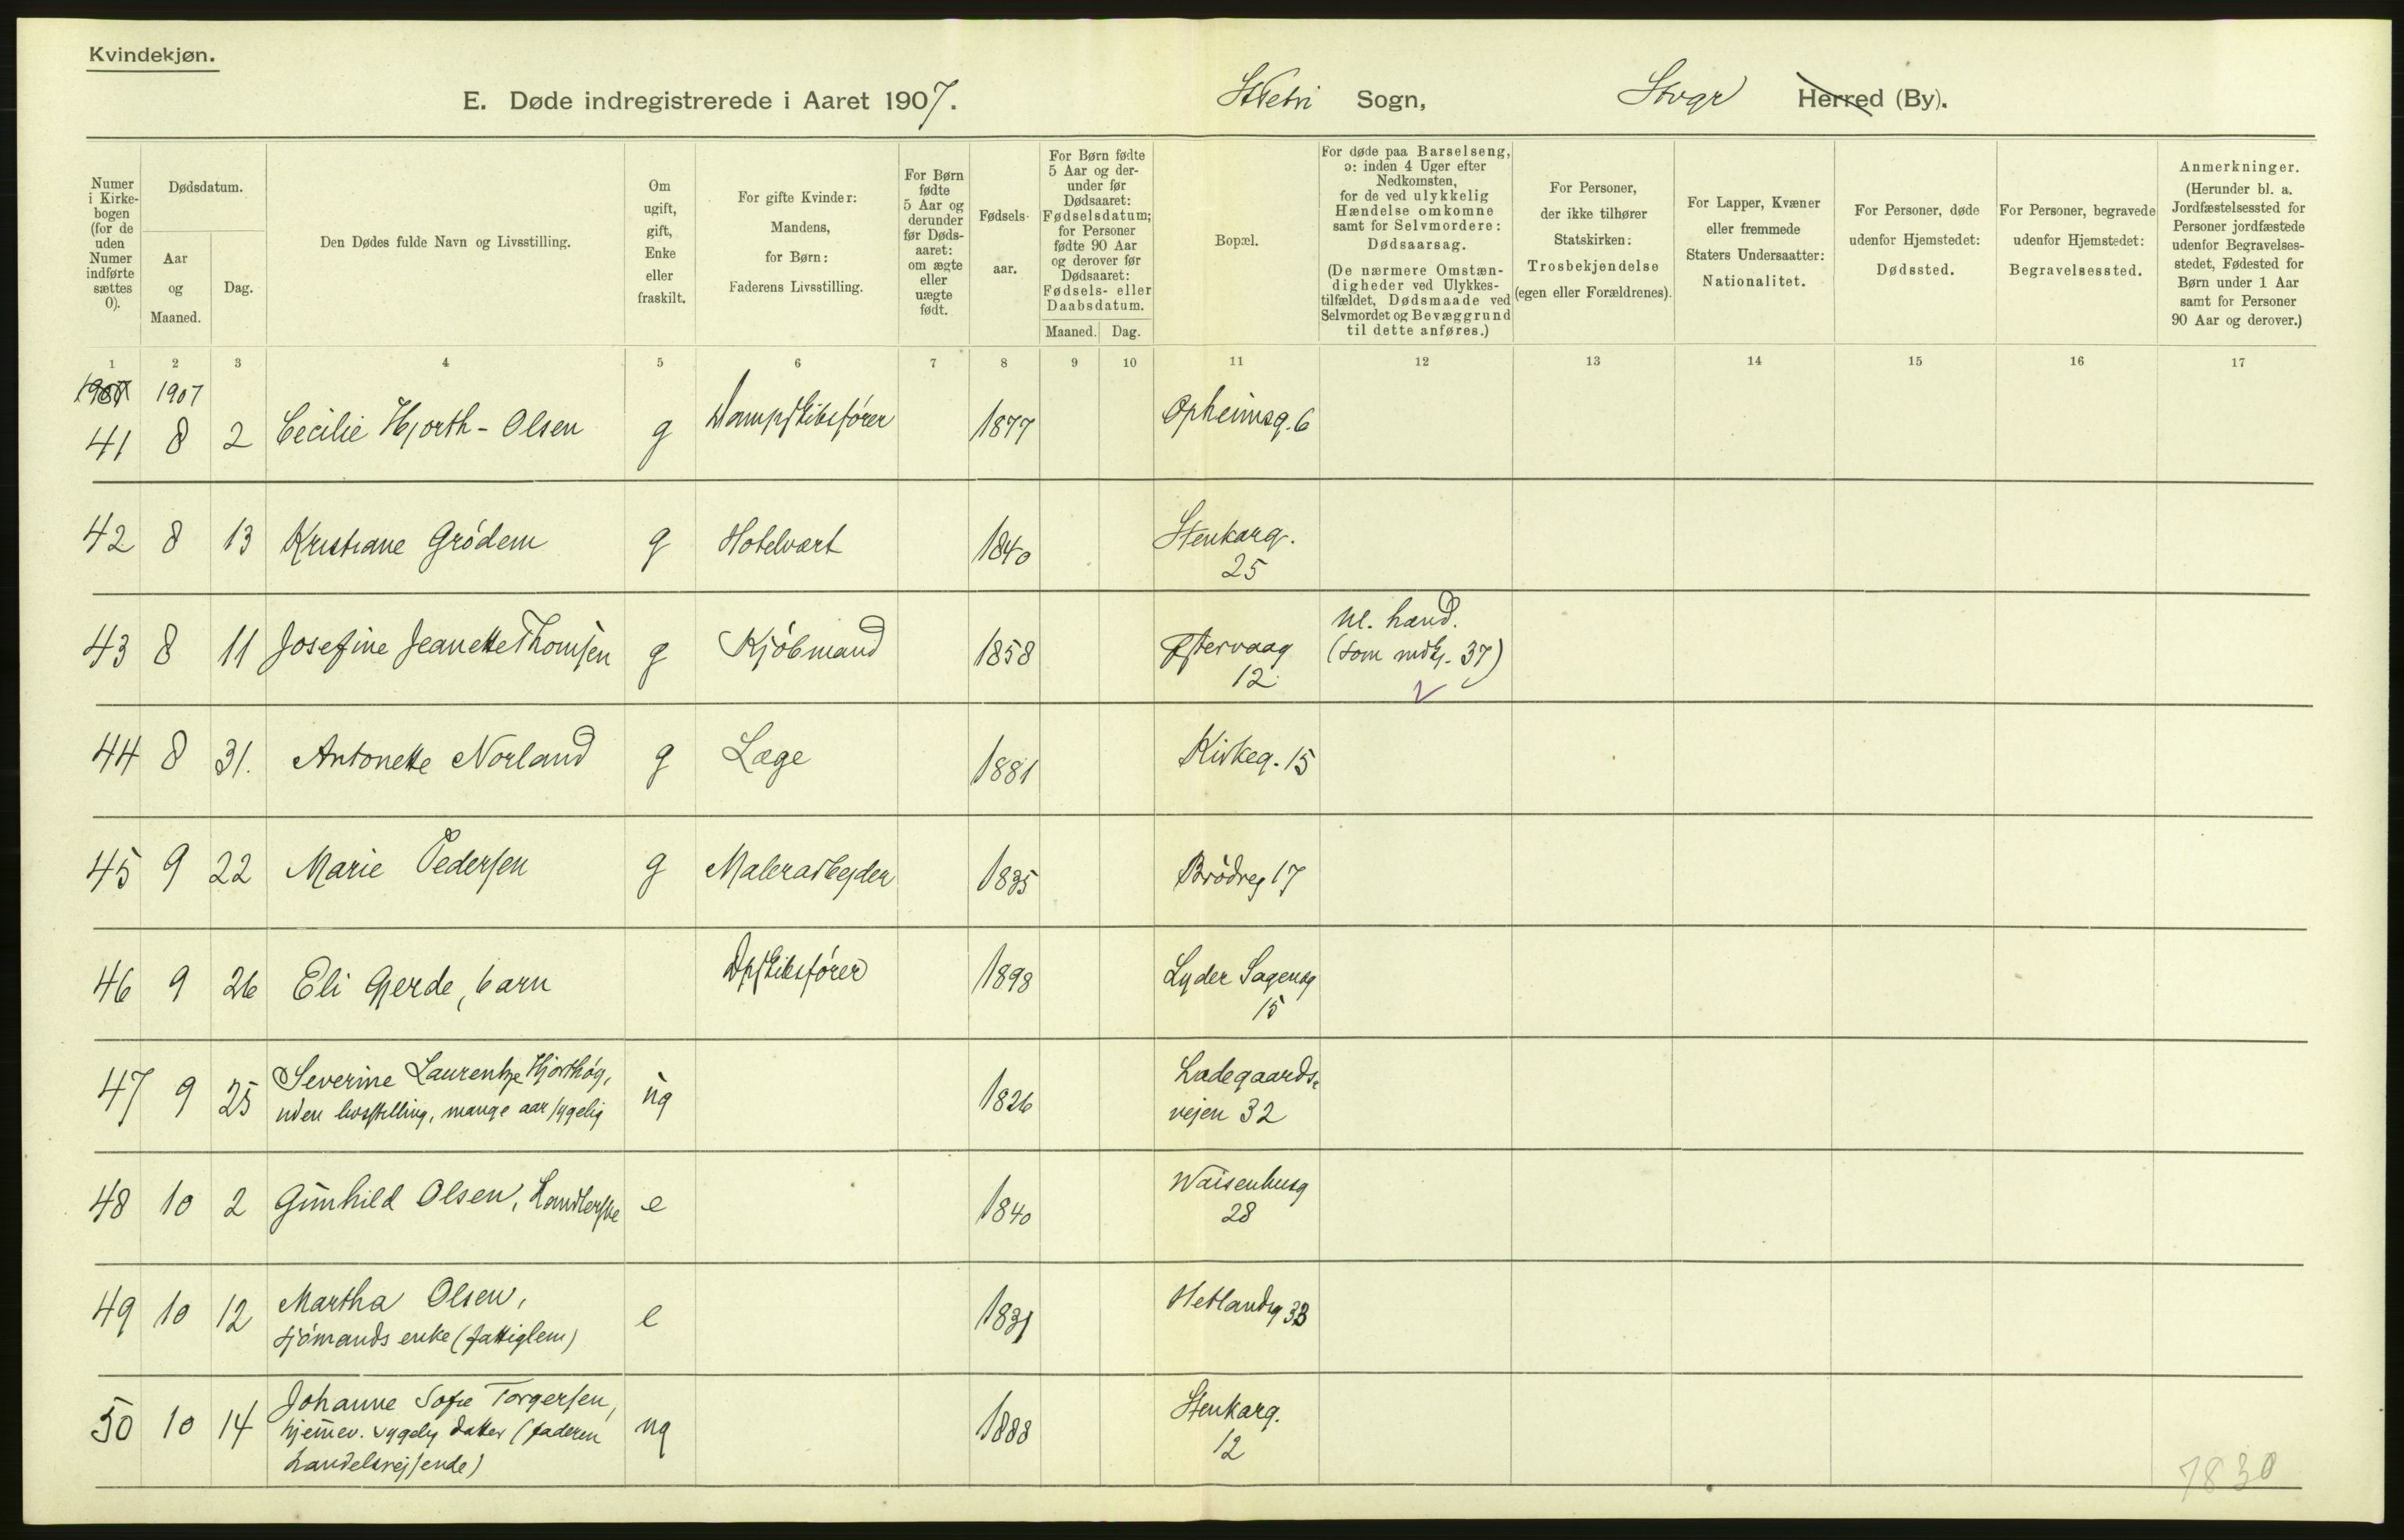 Kvindekjøn.
E. Døde indregistrerede i Aaret 1907.
St Petri Sogn, Stvgr Herred (By).
Numer i Kirke-bogen (for de uden Numer indførte sættes 0).
Dødsdatum.
Aar og Maaned.
Dag.
Den Dødes fulde Navn og Livsstilling.
Om ugift, gift, Enke eller fraskilt.
For gifte Kvinder: Mandens, for Børn: Faderens Livsstilling.
For Børn fødte 5 Aar og derunder før Døds-aaret: om ægte eller uægte født.
Fødsels-aar.
For Børn fødte 5 Aar og der-under før Dødsaaret: Fødselsdatum; for Personer fødte 90 Aar og derover før Dødsaaret: Fødsels- eller Daabsdatum.
Maaned. Dag.
Bopæl.
For døde paa Barselseng, ɔ: inden 4 Uger efter Nedkomsten, for de ved ulykkelig Hændelse omkomne samt for Selvmordere: Dødsaarsag.
(De nærmere Omstæn-digheder ved Ulykkes-tilfældet, Dødsmaade ved Selvmordet og Bevæggrund til dette anføres.)
For Personer, der ikke tilhører Statskirken: Trosbekjendelse (egen eller Forældrenes).
For Lapper, Kvæner eller fremmede Staters Undersaatter: Nationalitet.
For Personer, døde udenfor Hjemstedet: Dødssted.
For Personer, begravede udenfor Hjemstedet: Begravelsessted.
Anmerkninger.
(Herunder bl. a. Jordfæstelsessted for Personer jordfæstede udenfor Begravelses-stedet, Fødested for Børn under 1 Aar samt for Personer 90 Aar og derover.)
1 2 3 4 5 6 7 8 9 10 11 12 13 14 15 16 17
1907 1907
41 8 2 Cecilie Hjorth-Olsen g Dampskibsfører 1877 Opheimsg. 6
42 8 13 Kristiane Grödem g Hotelvært 1840 Stenkarg.
25
43 8 11 Josefine Jeanette Thomsen g Kjöbmand 1858 Østervaag
12
ul. hænd.
(som mdkj. 37)
44 8 31. Antonette Norland g Læge 1881 Kirkeg. 15
45 9 22 Marie Pedersen g Malerarbejder 1835 Brödreg 17
46 9 26 Eli Gjerde, barn Dpskibsfører 1898 Lyder Sagensg
15
47 9 25 Severine Laurentze Hjorthög,
uden livsstilling, mange aar sygelig
ug 1826 Ladegaards-
vejen 32
48 10 2 Gunhild Olsen, Handlerske e 1840 Waisenhusg
28
49 10 12 Martha Olsen,
sjömands enke (fattiglem)
e 1831 Hetlandsg 33
50 10 14 Johanne Sofie Torgersen,
hjemmev. sygelig datter (faderen
handelsrejsende)
ug 1888 Stenkarg.
12
7830